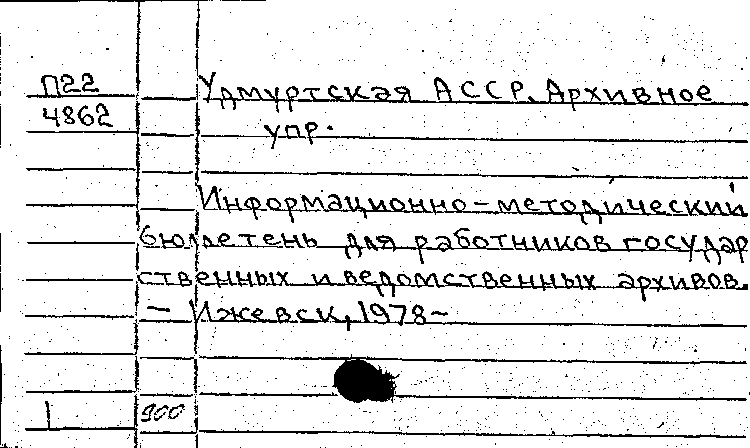 П22 Удмуртская АССР. Архивное
4862 упр.
Информационно-методический
бюллетень для работников государ
ственных и ведомственных архивов.
— Ижевск, 1978—
1 900